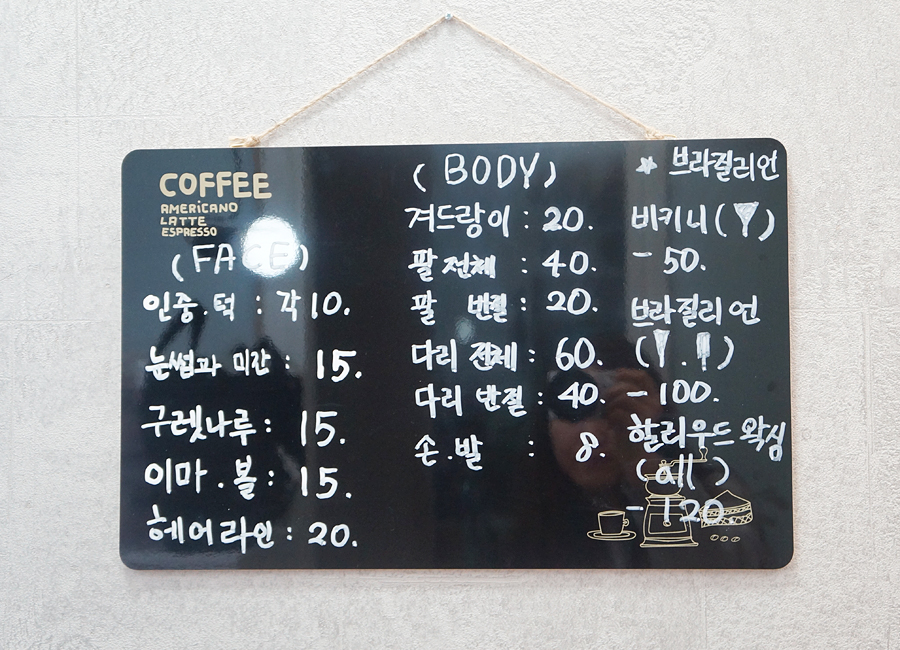 COFFEE
AMERICANO
LATTE
ESPRESSO
(FACE)
인중.턱 : 각10.
눈썹과 미간 : 15.
구렛나루 : 15.
이마.볼 : 15.
헤어라인 : 20.
(BODY)
겨드랑이 : 20.
팔 전체 : 40.
팔 반절 : 20.
다리 전체 : 60.
다리 반절 : 40.
손.발 : 8.
☆ 브라질리언
비키니( )
- 50.
브라질리언
( . )
- 100.
할리우드 왁싱
(all)
- 120.